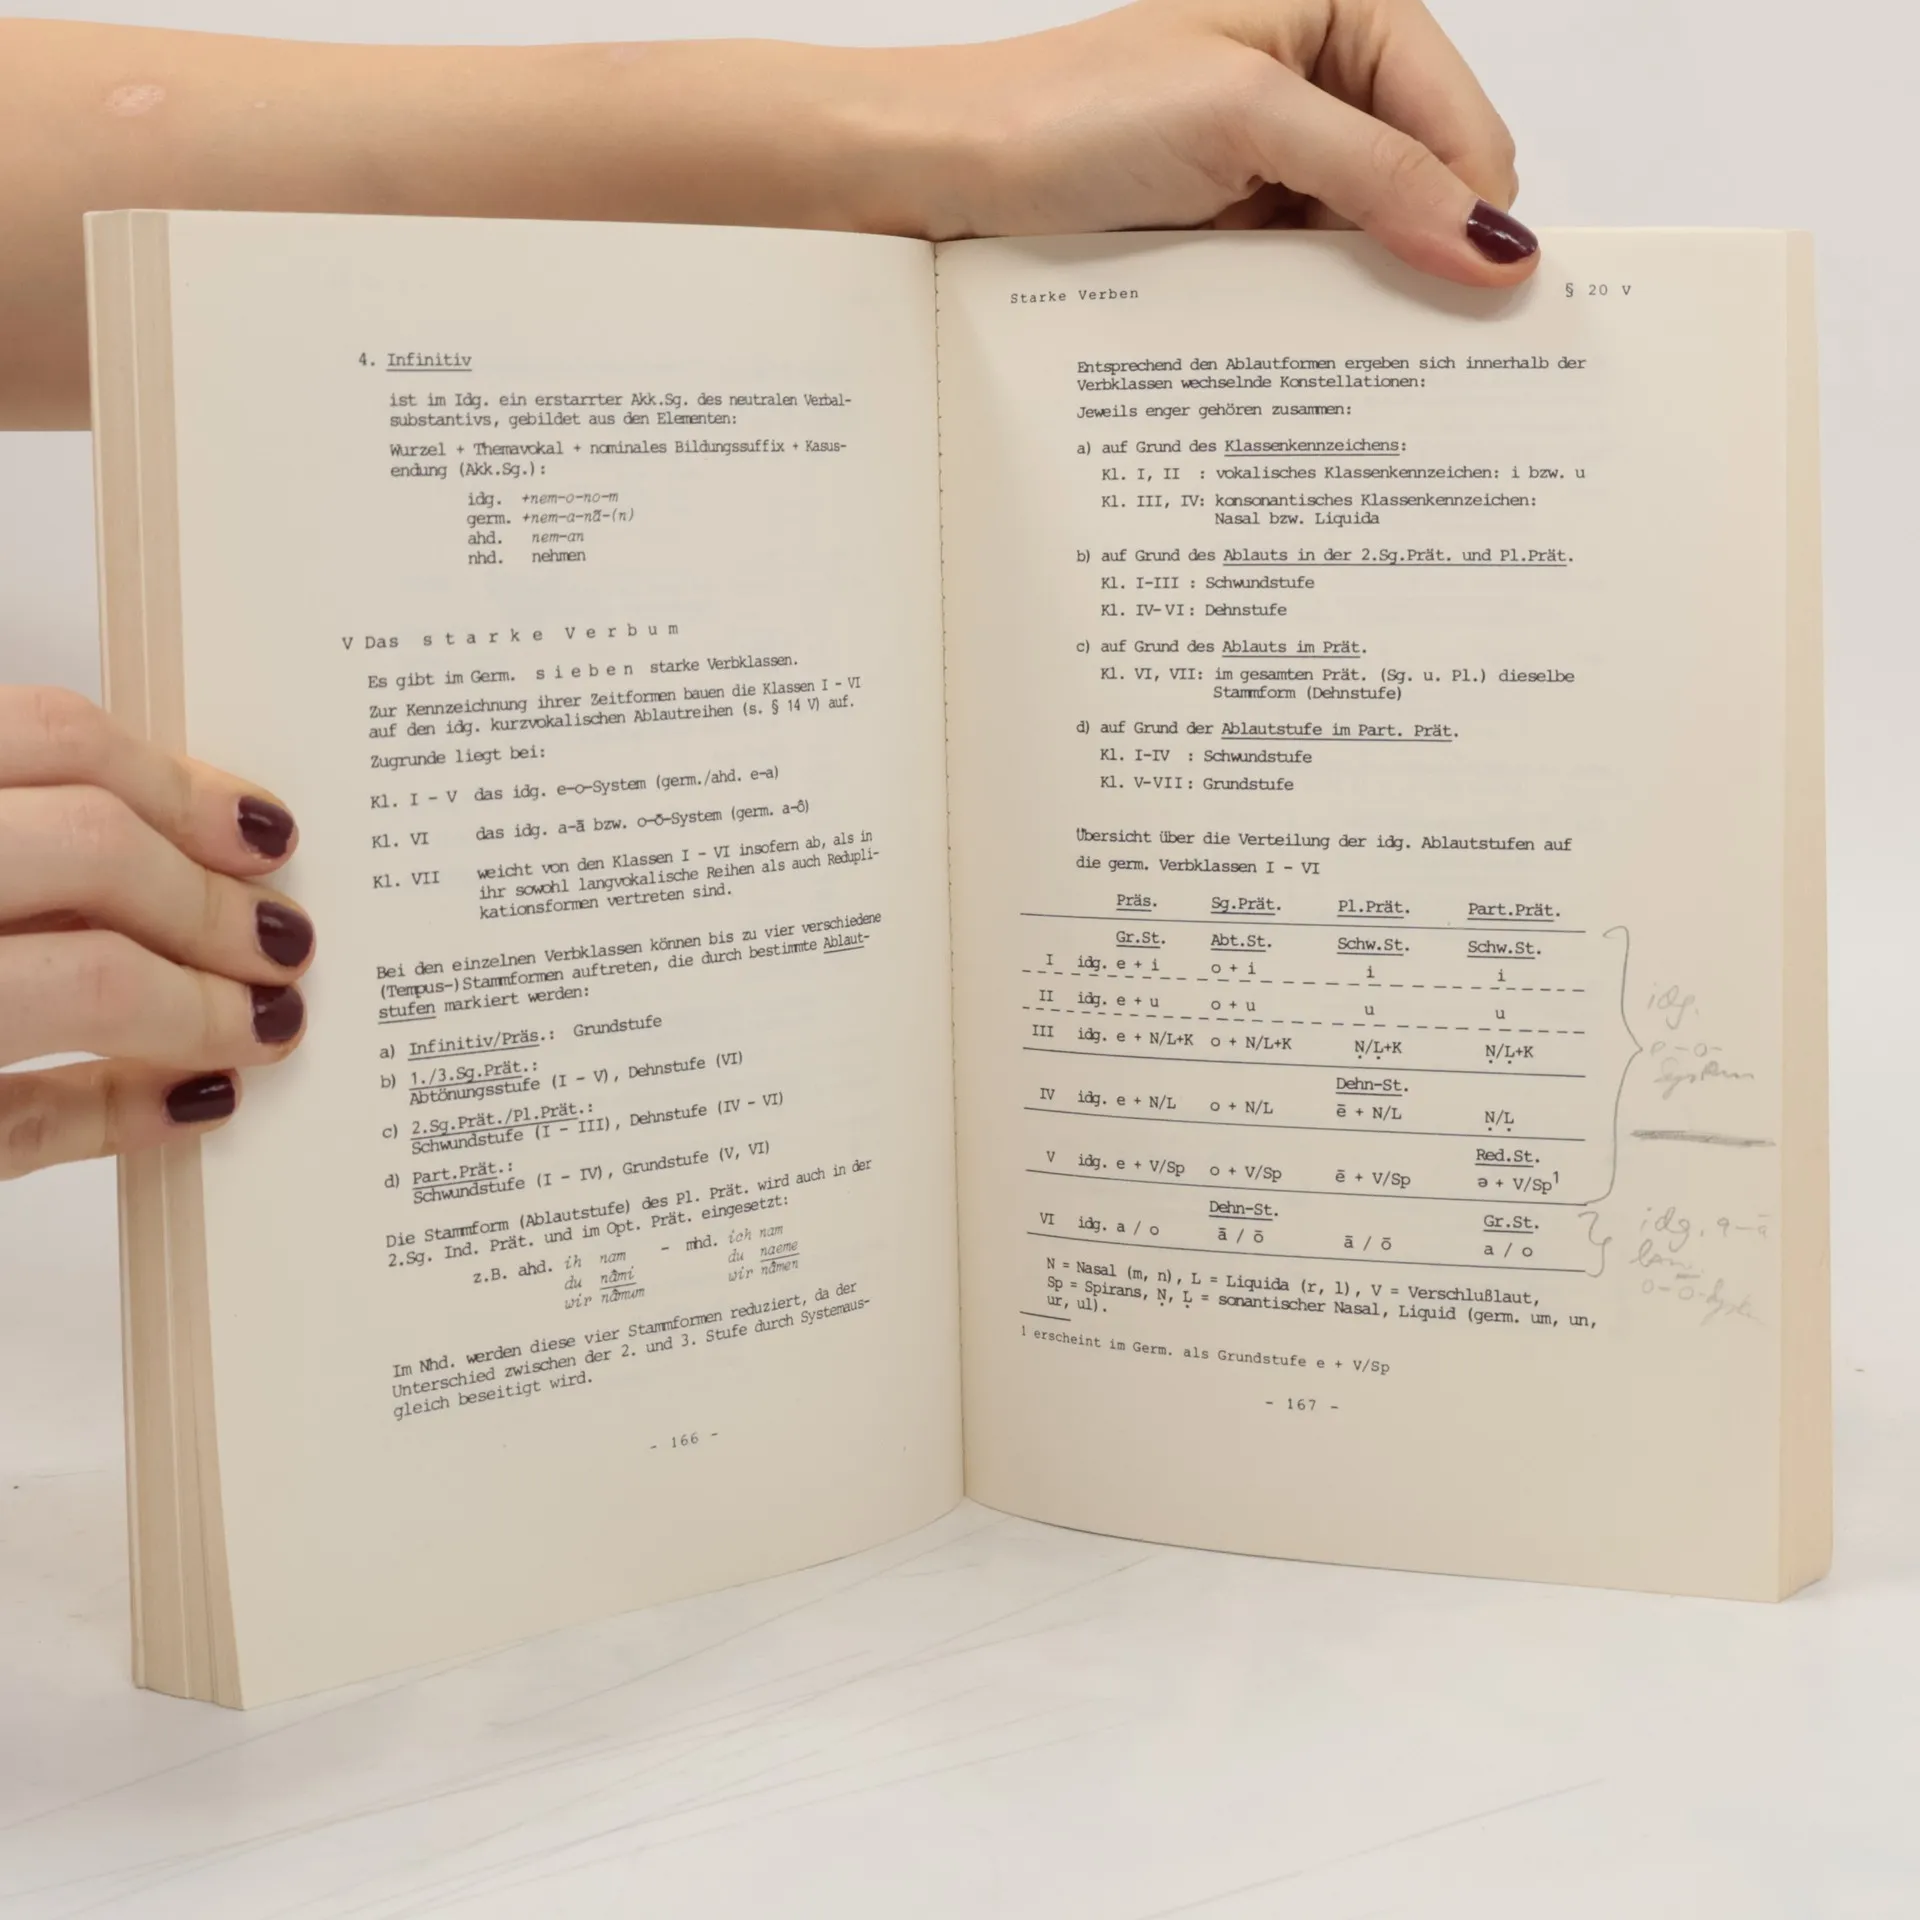 4. Infinitiv
ist im Idg. ein erstarrter Akk.Sg. des neutralen Verbal-
substantivs, gebildet aus den Elementen:
Wurzel + Themavokal + nominales Bildungssuffix + Kasus-
endung (Akk.Sg.):
idg. +nem-o-no-m
germ. +nem-a-nā-(n)
ahd. nem-an
nhd. nehmen
V Das s t a r k e V e r b u m
Es gibt im Germ. s i e b e n starke Verbklassen.
Zur Kennzeichnung ihrer Zeitformen bauen die Klassen I - VI
auf den idg. kurzvokalischen Ablautreihen (s. § 14 V) auf.
Zugrunde liegt bei:
Kl. I - V das idg. e-o-System (germ./ahd. e-a)
Kl. VI das idg. a-ā bzw. o-ō-System (germ. a-ô)
Kl. VII weicht von den Klassen I - VI insofern ab, als in
ihr sowohl langvokalische Reihen als auch Redupli-
kationsformen vertreten sind.
Bei den einzelnen Verbklassen können bis zu vier verschiedene
(Tempus-)Stammformen auftreten, die durch bestimmte Ablaut-
stufen markiert werden:
a) Infinitiv/Präs.: Grundstufe
b) 1./3.Sg.Prät.:
Abtönungsstufe (I - V), Dehnstufe (VI)
c) 2.Sg.Prät./Pl.Prät.:
Schwundstufe (I - III), Dehnstufe (IV - VI)
d) Part.Prät.:
Schwundstufe (I - IV), Grundstufe (V, VI)
Die Stammform (Ablautstufe) des Pl. Prät. wird auch in der
2.Sg. Ind. Prät. und im Opt. Prät. eingesetzt:
z.B. ahd. ih nam - mhd. ich nam
du nâmi du naeme
wir nâmum wir nâmen
Im Nhd. werden diese vier Stammformen reduziert, da der
Unterschied zwischen der 2. und 3. Stufe durch Systemaus-
gleich beseitigt wird.
- 166 -
Starke Verben § 20 V
Entsprechend den Ablautformen ergeben sich innerhalb der
Verbklassen wechselnde Konstellationen:
Jeweils enger gehören zusammen:
a) auf Grund des Klassenkennzeichens:
Kl. I, II : vokalisches Klassenkennzeichen: i bzw. u
Kl. III, IV: konsonantisches Klassenkennzeichen:
Nasal bzw. Liquida
b) auf Grund des Ablauts in der 2.Sg.Prät. und Pl.Prät.
Kl. I-III : Schwundstufe
Kl. IV-VI: Dehnstufe
c) auf Grund des Ablauts im Prät.
Kl. VI, VII: im gesamten Prät. (Sg. u. Pl.) dieselbe
Stammform (Dehnstufe)
d) auf Grund der Ablautstufe im Part. Prät.
Kl. I-IV : Schwundstufe
Kl. V-VII: Grundstufe
Übersicht über die Verteilung der idg. Ablautstufen auf
die germ. Verbklassen I - VI
Präs. Sg.Prät. Pl.Prät. Part.Prät.
Gr.St. Abt.St. Schw.St. Schw.St.
I idg. e + i o + i i i
II idg. e + u o + u u u
III idg. e + N/L+K o + N/L+K Ṇ/Ḷ+K Ṇ/Ḷ+K
Dehn-St.
IV idg. e + N/L o + N/L ē + N/L Ṇ/Ḷ
Red.St.
V idg. e + V/Sp o + V/Sp ē + V/Sp ə + V/Sp¹
Dehn-St. Gr.St.
VI idg. a / o ā / ō ā / ō a / o
N = Nasal (m, n), L = Liquida (r, l), V = Verschlußlaut,
Sp = Spirans, Ṇ, Ḷ = sonantischer Nasal, Liquid (germ. um, un,
ur, ul).
1 erscheint im Germ. als Grundstufe e + V/Sp
- 167 -
idg.
e-o-
System
idg. a-ā
o-ō-System